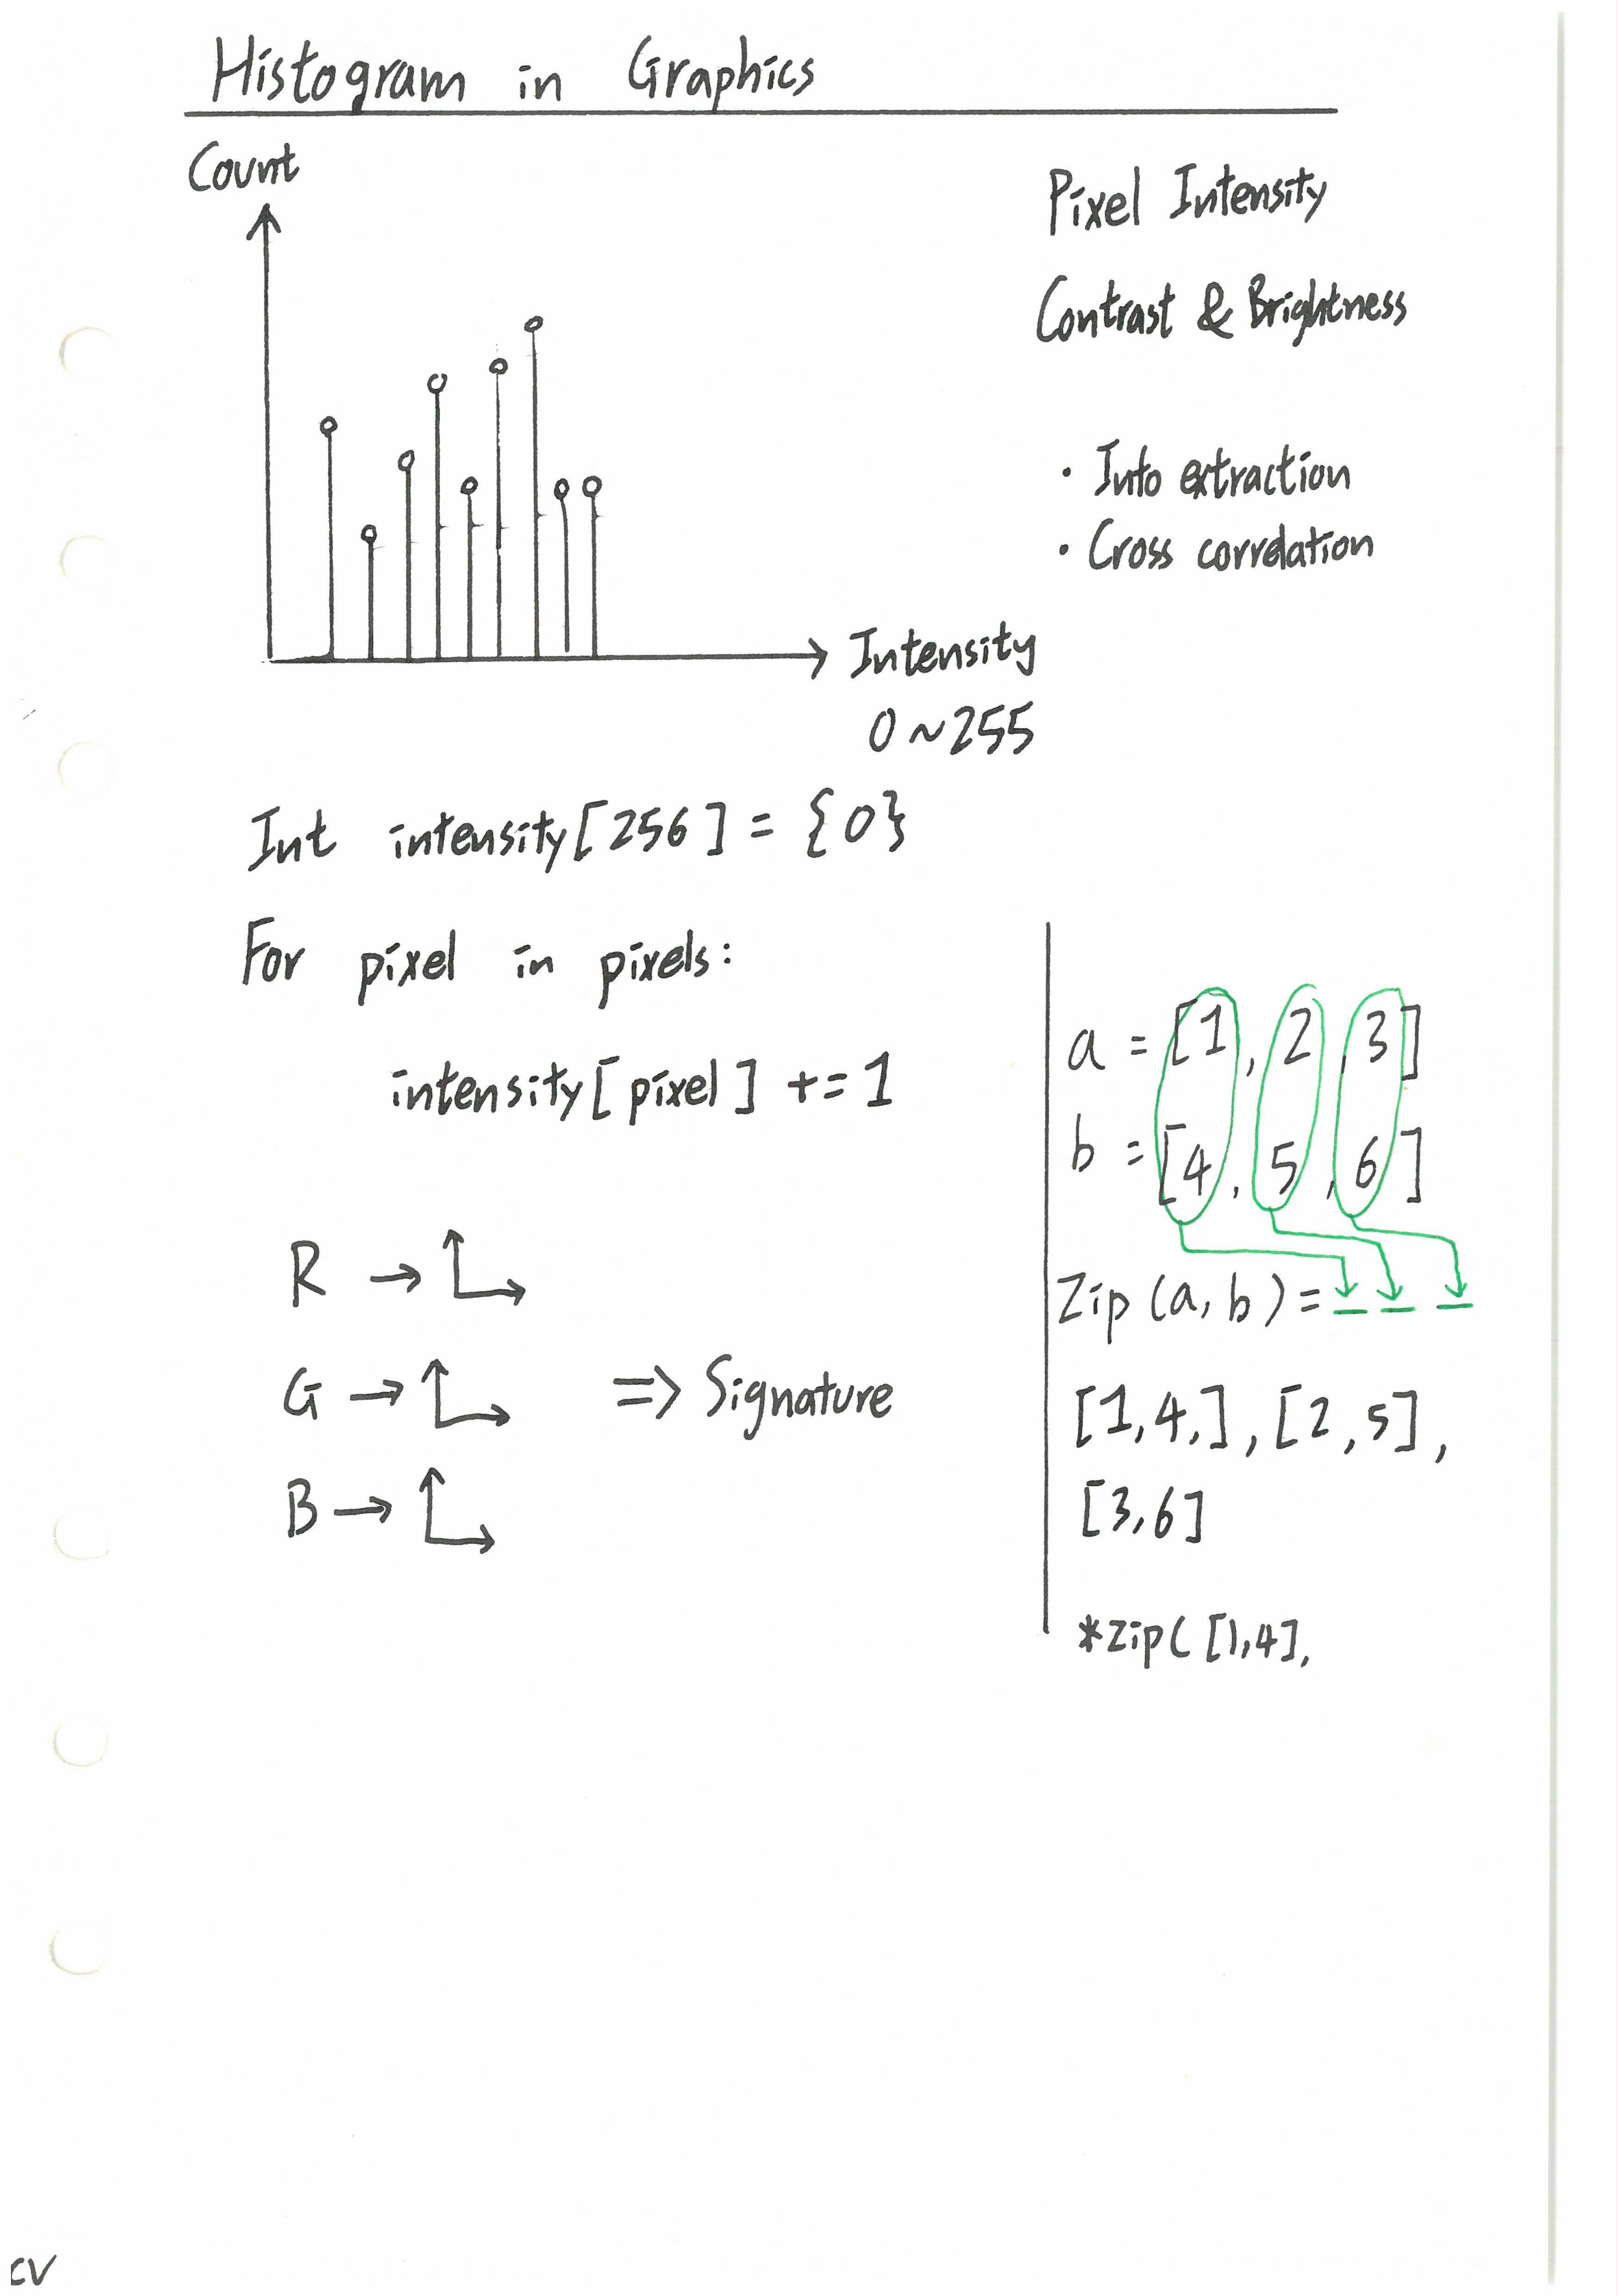 Histogram in Graphics
Count
Pixel Intensity
Contrast & Brightness
· Info extraction
· Cross correlation
Intensity
0 ~ 255
Int intensity[256] = {0}
For pixel in pixels:
intensity[pixel] += 1
R →
G → => Signature
B →
a = [1, 2, 3]
b = [4, 5, 6]
Zip (a, b) = _ _ _
[1,4,], [2,5],
[3,6]
*zip( [1,4],
CV